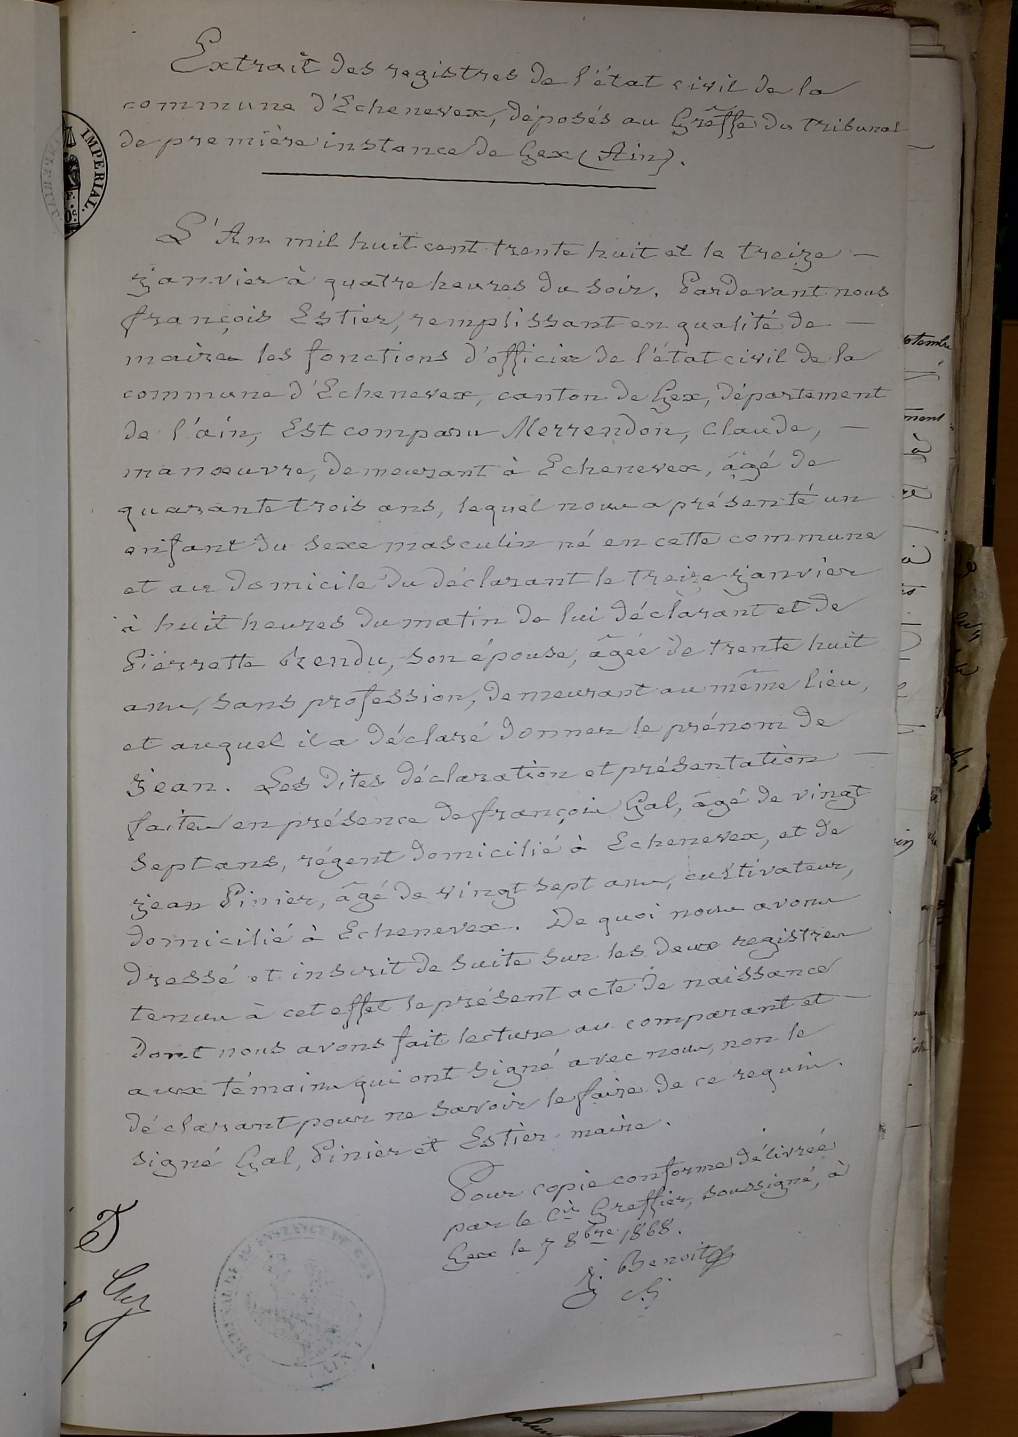 Extrait des registres de l'état civil de la
commune d'Echenevex, déposés au Greffe du tribunal
de première instance de Gex (Ain).
IMPERIAL.
L'An mil huit cent trente huit et le treize —
janvier à quatre heures du soir. Pardevant nous
françois Estier, remplissant en qualité de —
maire les fonctions d'officier de l'état civil de la
commune d'Echenevex, canton de Gex, département
de l'ain, Est comparu Merrendon, Claude, —
manœuvre, demeurant à Echenevex, âgé de
quarante trois ans, lequel nous a présenté un
enfant du sexe masculin né en cette commune
et au domicile du déclarant le treize janvier
à huit heures du matin de lui déclarant et de
Pierrette Grendu, son épouse, âgée de trente huit
ans, sans profession, demeurant au même lieu,
et auquel il a déclaré donner le prénom de
jean. Les dites déclaration et présentation —
faites en présence de françois Gal, âgé de vingt
sept ans, régent domicilié à Echenevex, et de
jean Pinier, âgé de vingt sept ans, cultivateur,
domicilié à Echenevex. De quoi nous avons
dressé et inscrit de suite sur les deux registres
tenus à cet effet le présent acte de naissance
dont nous avons fait lecture au comparant et —
aux témoins qui ont signé avec nous, non le
déclarant pour ne savoir le faire de ce requis.
signé Gal, Pinier et Estier maire.
Pour copie conforme délivrée
par le Cis Greffier, soussigné, à
Gex le 7 8bre 1868.
j. Benoit